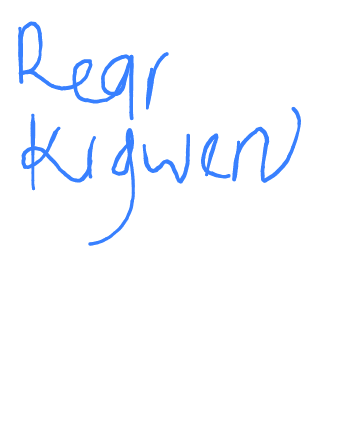 Rear
Kigwen